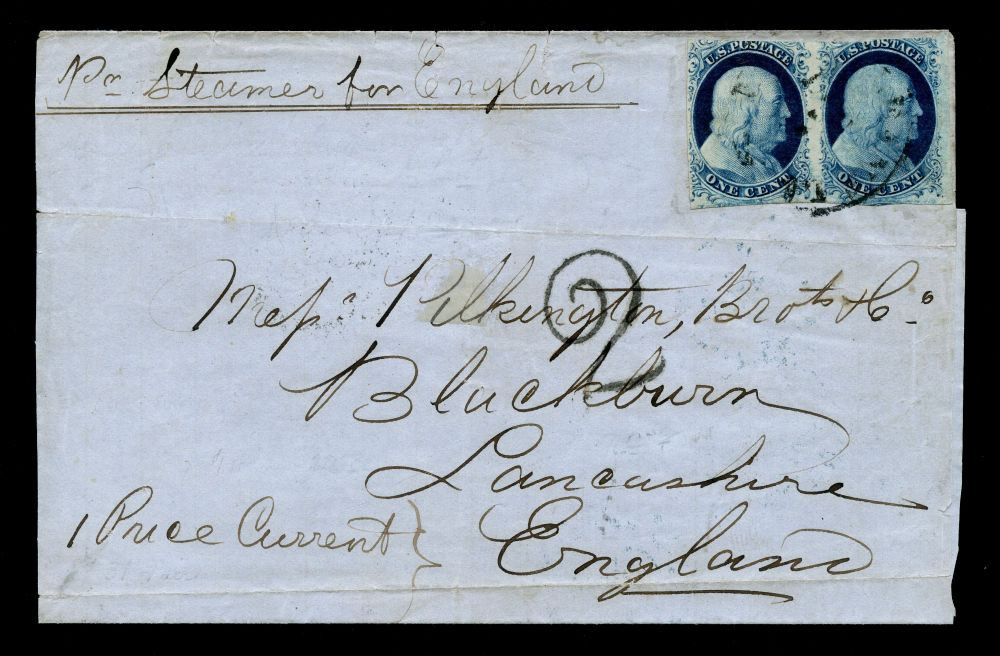 Pr Steamer for England
U.S. POSTAGE
ONE CENT
U.S. POSTAGE
ONE CENT
2
Messrs Pilkington, Brots & Co.
Blackburn
Lancashire
England
1 Price Current